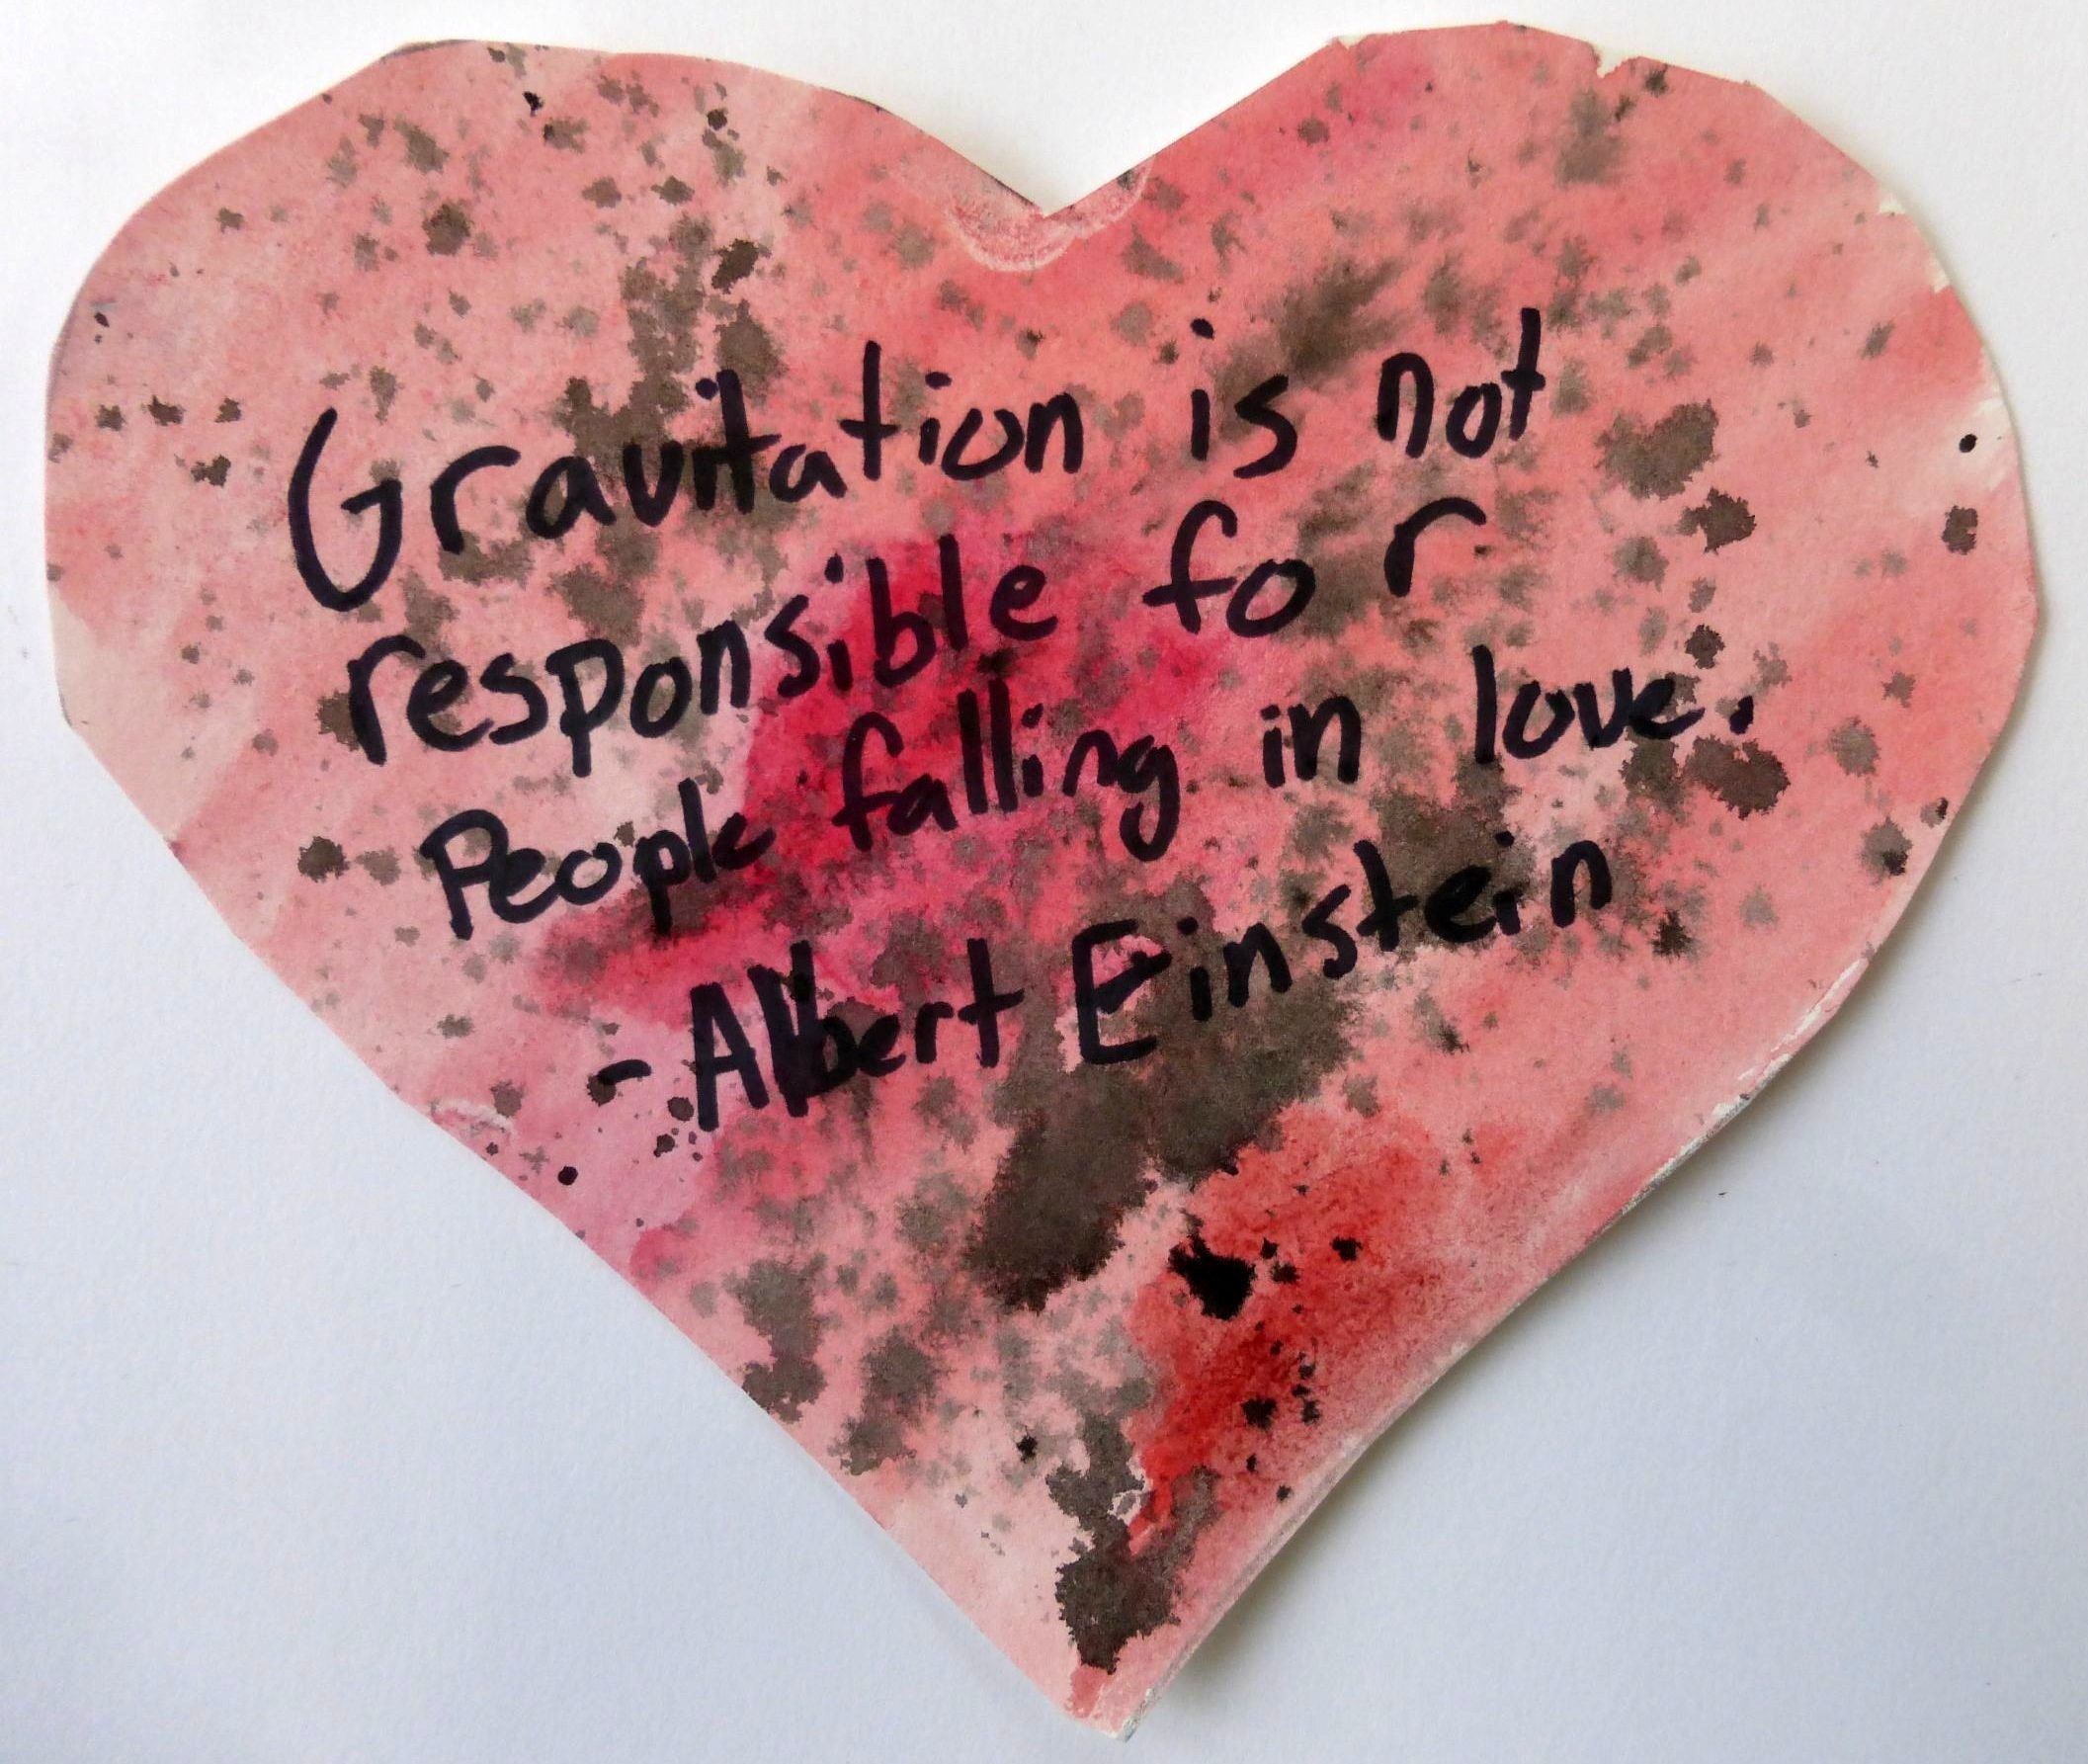 Gravitation is not
responsible for
People falling in love.
-Albert Einstein